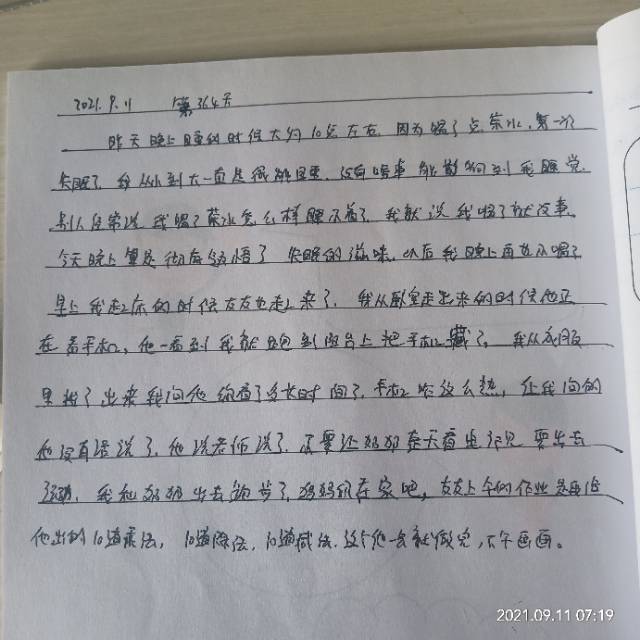 2021.9.11 第364天
昨天晚上睡的时候大约10点左右，因为喝了点茶水，第一次
失眠了，我从小到大一直是很能睡，没有啥事能影响到我睡觉，
别人经常说我喝了茶水怎么样睡不着了，我就说我喝了就没事，
今天晚上算是彻底领悟了失眠的滋味，以后我晚上再也不喝了，
早上我起床的时候友友也起来了，我从卧室走出来的时候他正
在看手机，他一看到我就跑到阳台上把手机藏了，我从衣服
里找了出来我问他你看了多长时间了，手机咋这么热，让我问的
他没有话说了，他说老师说了，不要让妈妈天天看电视要出去
运动，我和妈妈出去跑步了，妈妈你在家吧，友友上午的作业是再做
他出的10道乘法，10道除法，10道减法，这个他一会就做完，下午画画。
2021.09.11 07:19